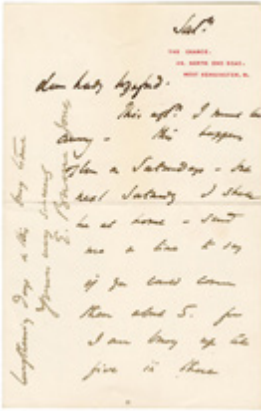 Sat.
THE GRANGE.
49, NORTH END ROAD,
WEST KENSINGTON, W.
dear Lady
This aft. I must be
away - this happens
often on Saturdays - but
next Saturday I shall
be at home - send
me a line to say
if you could come
then about 5. for
I am busy up till
five in these
days in this busy time
Yours very sincerely
E. Burne Jones